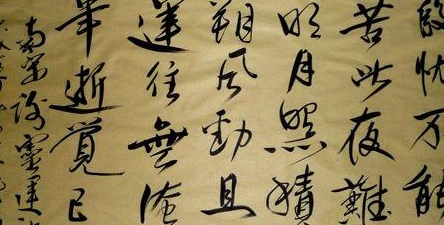 殷忧不能
苦此夜難
明月照積
朔风勁且
運往無淹
年逝覺已
南宋謝靈運